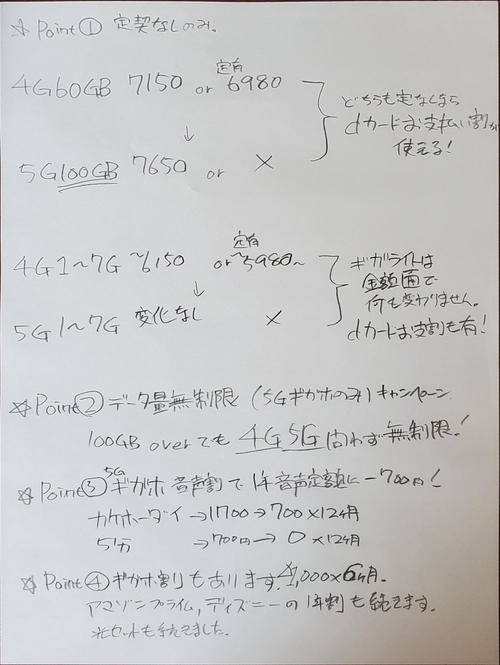 ☆ Point① 定契なしのみ。
4G60GB 7150 or 定有 6980
↓
5G100GB 7650 or ×
どちらも定なしなら
dカードお支払い割が
使える!
4G1~7G ~6150 or 定有 ~5980~
↓
5G1~7G 変化なし ×
ギガライトは
金額面で
何も変わりません。
dカードお支割も有!
☆Point② データ量無制限 (5Gギガホのみ) キャンペーン
100GB overでも 4G5G問わず無制限!
☆Point③ 5Gギガホ音声割で1年音声定額に-700円!
カケホーダイ→1700→700×12ヶ月
5分 →700円→0×12ヶ月
☆Point④ギガホ割もあります。 1,000×6ヶ月。
アマゾンプライム,ディズニーの1年割も続きます。
光セットも続きました。